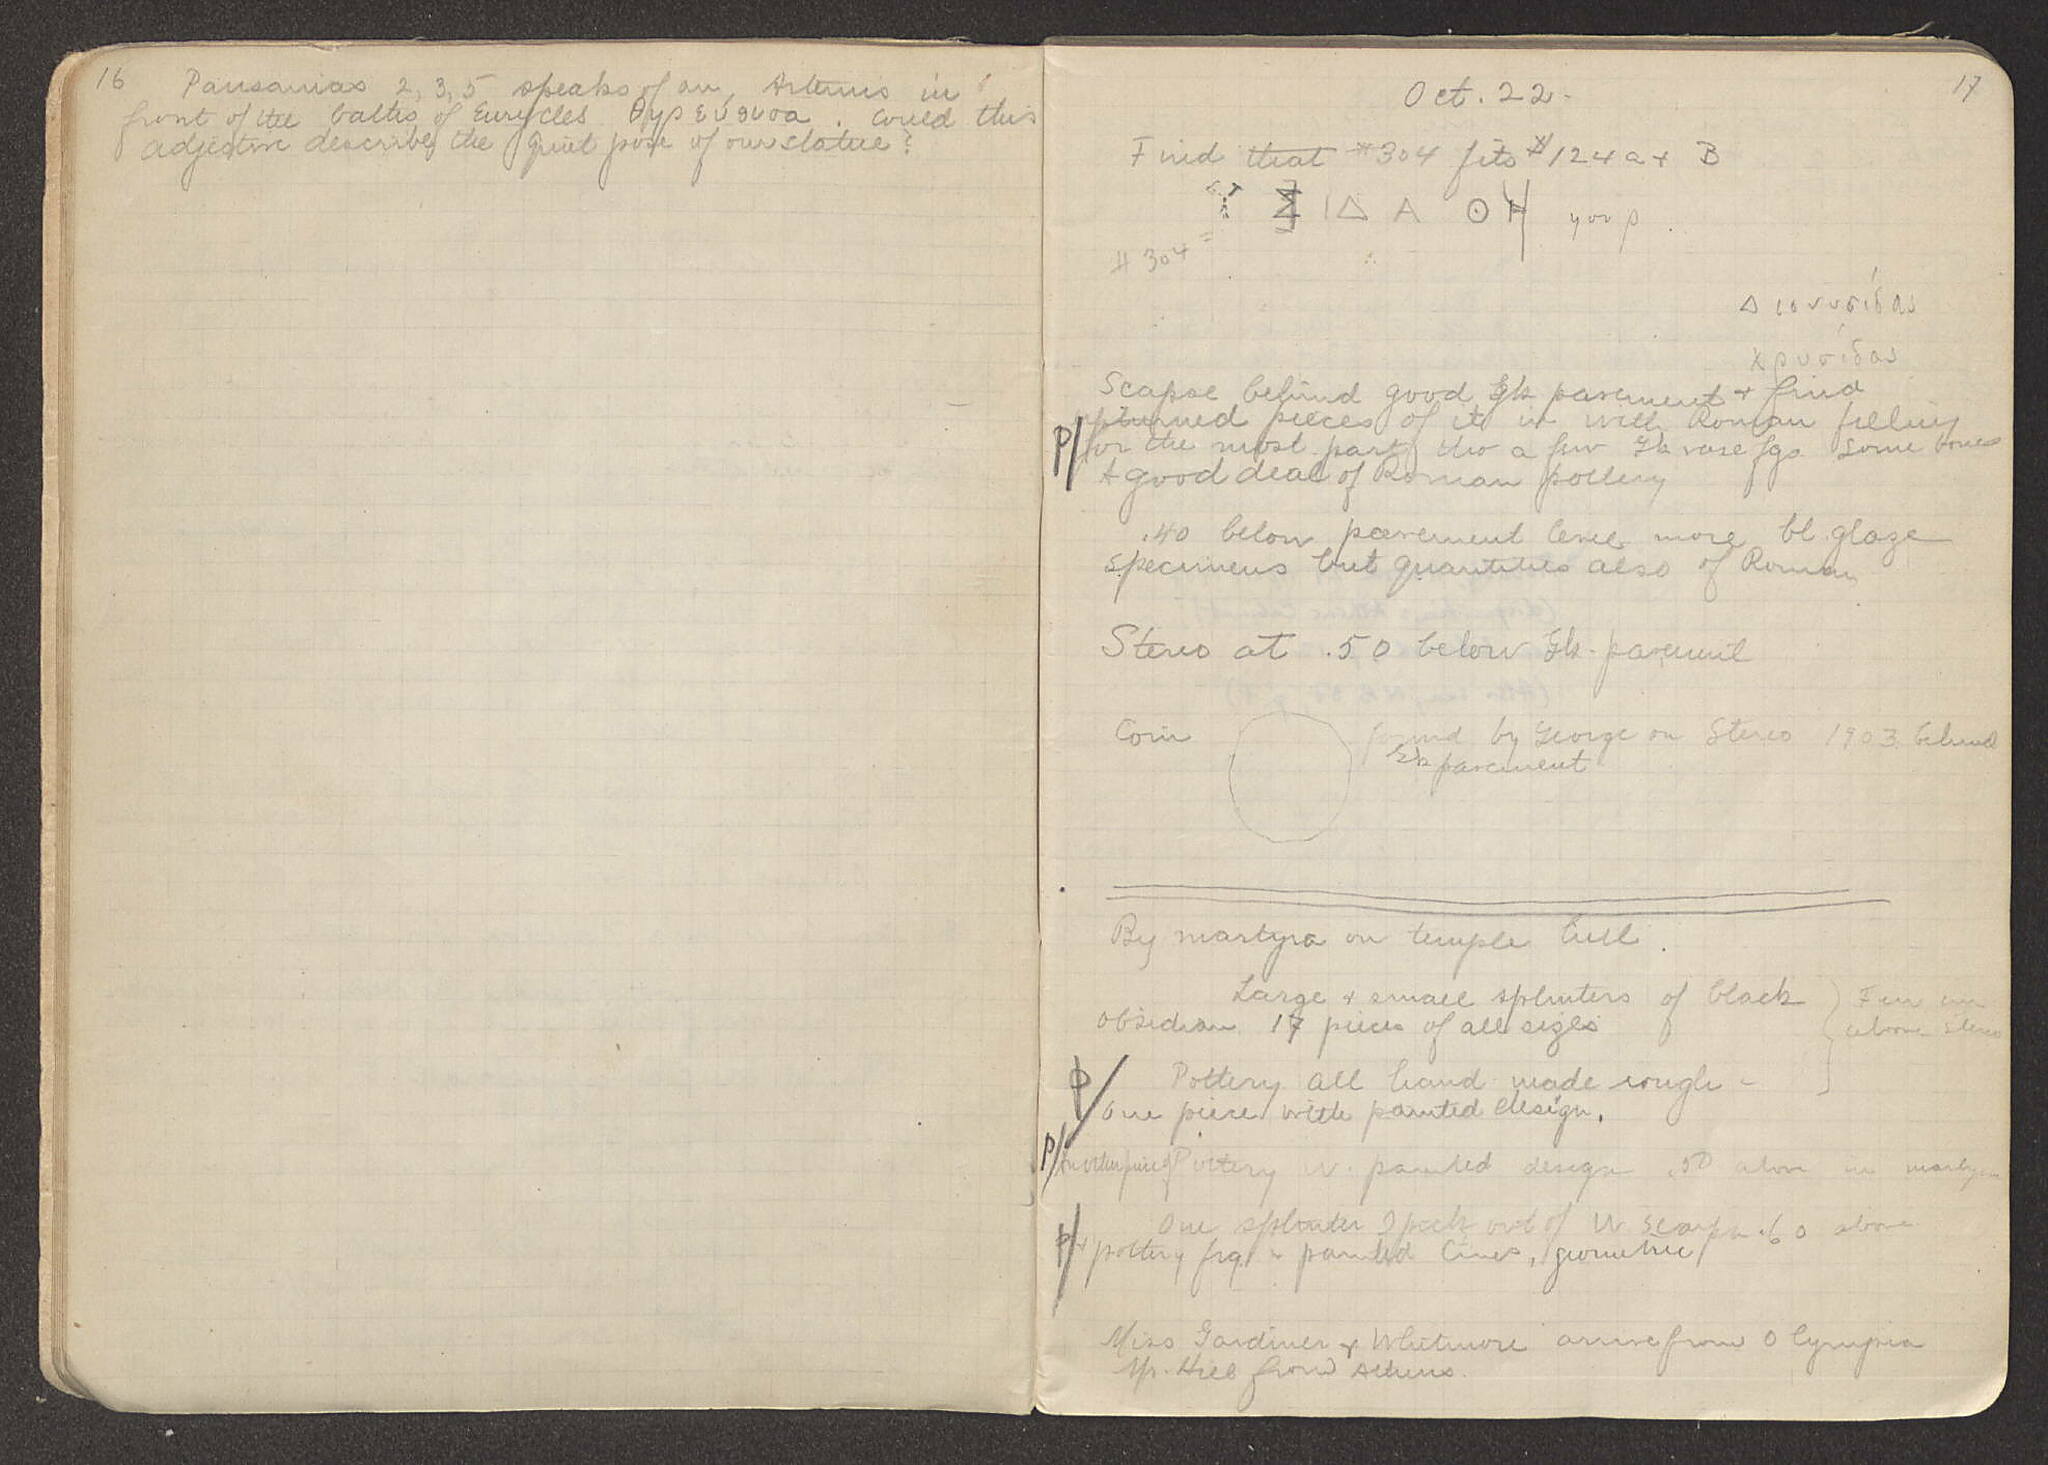 16
Pausanias 2, 3, 5 speaks of an Artemis in
front of the baths of Eurycles θηρεύουσα. Could this
adjective describe the quiet pose of our statue?
17
Oct. 22.
Find that #304 fits #124 a + B
Σ ΙΔ Α ΘΗ
#304 =
Διονυσίδας
Χρυσίδας
Scarpe behind good Gk pavement + find
turned pieces of it in with Roman filling
P/ for the most part, tho a few Gk vase fgs Some bones
+ good deal of Roman pottery
.40 below pavement level more bl. glaze
specimens but quantities also of Roman
Stereo at .50 below Gk. pavement
Coin found by George on Stereo 1903 behind
Gk pavement
By martyra on temple hill.
Large + small splinters of black
obsidian 17 pieces of all sizes
Few cm
above Stereo
P/ Pottery all hand made rough -
One piece with painted design.
P/ Another piece of Pottery w. painted design .50 above in martyra
One splinter I pick out of W scarpe .60 above
P/ + pottery frg. w painted lines, geometric
Miss Gardiner + Whitmore arrive from Olympia
Mr. Hill from Athens.